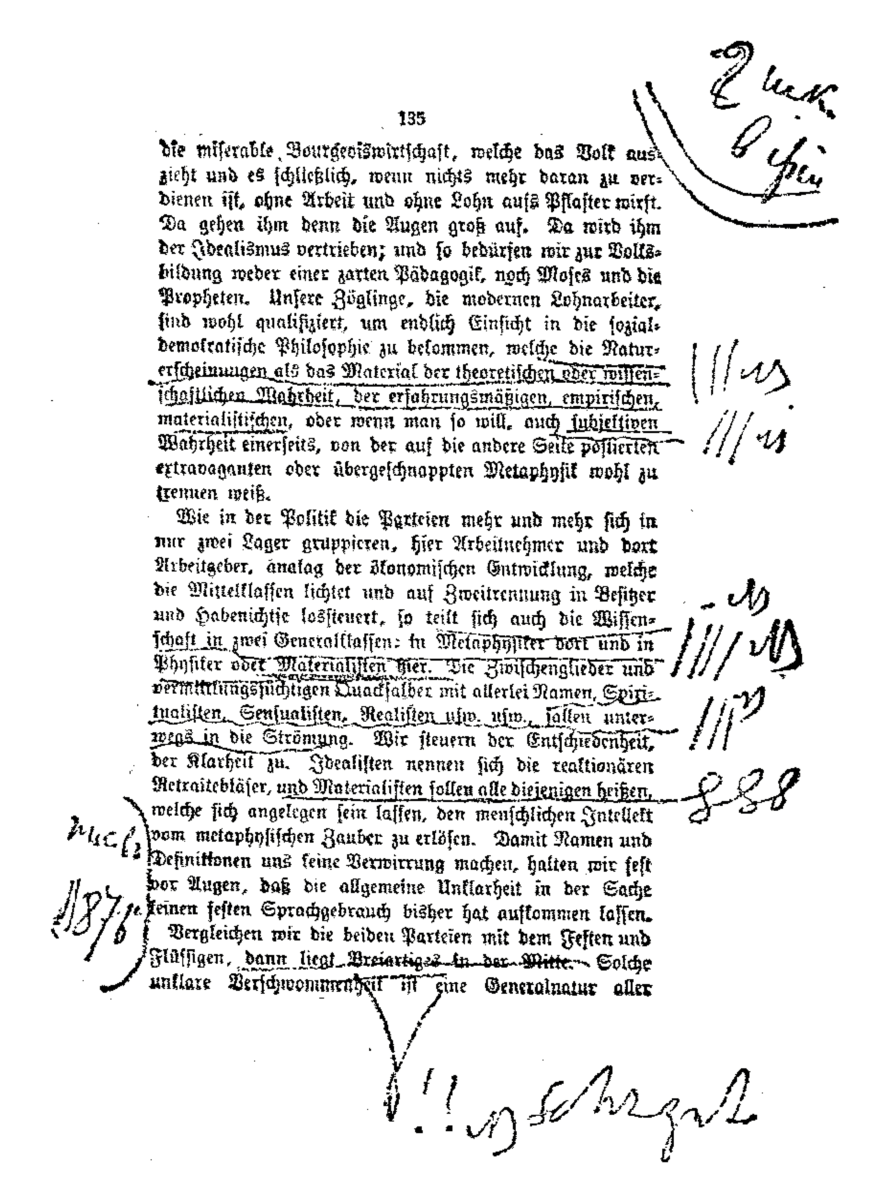 135
die miserable Bourgeoiswirtschaft, welche das Volk aus-
zieht und es schließlich, wenn nichts mehr daran zu ver-
dienen ist, ohne Arbeit und ohne Lohn aufs Pflaster wirft.
Da gehen ihm denn die Augen groß auf. Da wird ihm
der Idealismus vertrieben; und so bedürfen wir zur Volks-
bildung weder einer zarten Pädagogik, noch Moses und die
Propheten. Unsere Zöglinge, die modernen Lohnarbeiter,
sind wohl qualifiziert, um endlich Einsicht in die sozial-
demokratische Philosophie zu bekommen, welche die Natur-
erscheinungen als das Material der theoretischen oder wissen-
schaftlichen Wahrheit, der erfahrungsmäßigen, empirischen,
materialistischen, oder wenn man so will, auch subjektiven
Wahrheit einerseits, von der auf die andere Seite postierten
extravaganten oder übergeschnappten Metaphysik wohl zu
trennen weiß.
Wie in der Politik die Parteien mehr und mehr sich in
nur zwei Lager gruppieren, hier Arbeitnehmer und dort
Arbeitgeber, analag der ökonomischen Entwicklung, welche
die Mittelklassen lichtet und auf Zweitrennung in Besitzer
und Habenichtse lossteuert, so teilt sich auch die Wissen-
schaft in zwei Generalklassen: in Metaphysiker dort und in
Physiker oder Materialisten hier. Die Zwischenglieder und
vermittlungssüchtigen Quacksalber mit allerlei Namen, Spiri-
tualisten, Sensualisten, Realisten usw. usw., fallen unter-
wegs in die Strömung. Wir steuern der Entschiedenheit,
der Klarheit zu. Idealisten nennen sich die reaktionären
Retraitebläser, und Materialisten sollen alle diejenigen heißen,
welche sich angelegen sein lassen, den menschlichen Intellekt
vom metaphysischen Zauber zu erlösen. Damit Namen und
Definitionen uns keine Verwirrung machen, halten wir fest
vor Augen, daß die allgemeine Unklarheit in der Sache
keinen festen Sprachgebrauch bisher hat aufkommen lassen.
Vergleichen wir die beiden Parteien mit dem Festen und
Flüssigen, dann liegt Breiartiges in der Mitte. Solche
unklare Verschwommenheit ist eine Generalnatur aller
1876
!! NB sehr gut